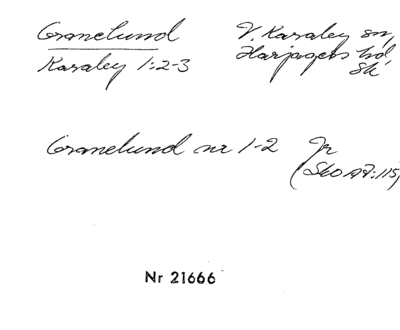 Granelund
V. Karaby sn,
Karaby 1:2-3
Harjagers hd,
Sk
Granelund nr 1-2
Jr
(Sko A7:115)
Nr 21666